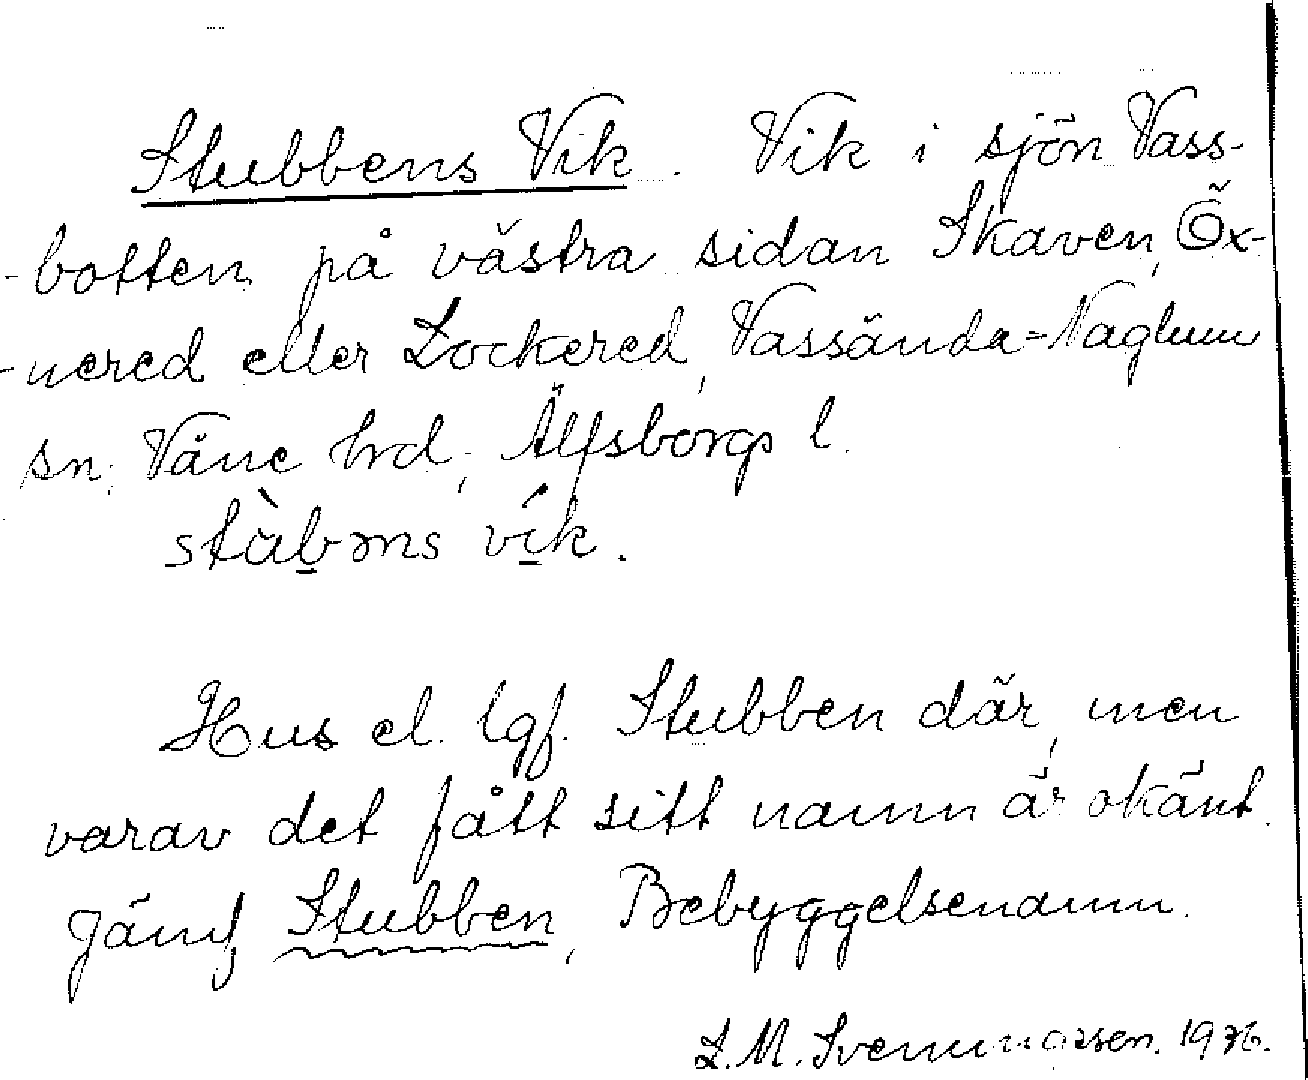 Stubbens Vik. Vik i sjön Vass-
-botten på västra sidan Skaven, Öx-
-nered eller Lockered, Vassända-Naglum
sn, Väne hrd, Älfsborgs l.
stàbəns vík.
Hus el. lgf. Stubben där, men
varav det fått sitt namn är okänt.
Jämf Stubben, Bebyggelsenamn.
L.M. Svenungsson. 1926.